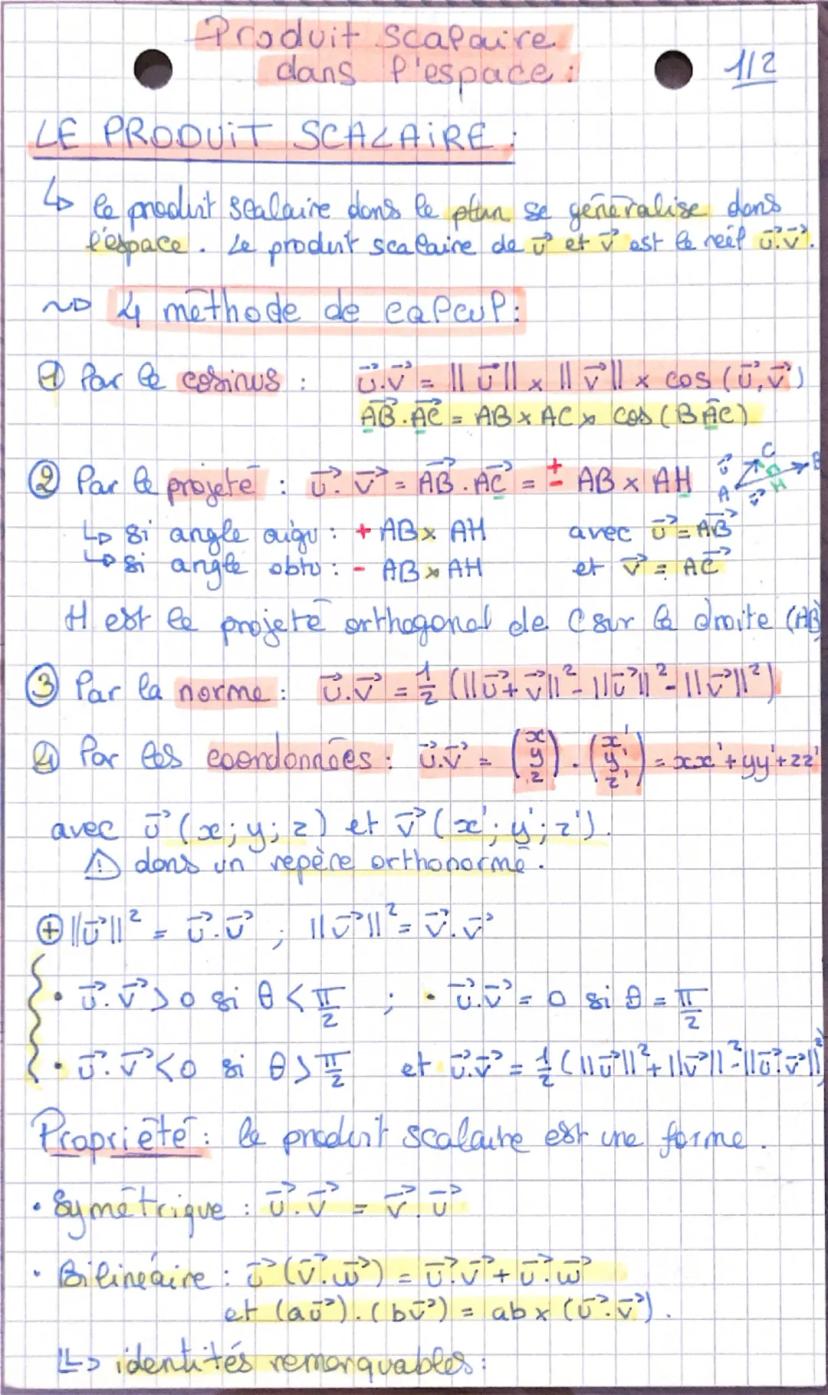 Produit scalaire
dans l'espace :
1/2
LE PRODUIT SCALAIRE :
↳ le produit scalaire dans le plan se généralise dans
l'espace. Le produit scalaire de u⃗ et v⃗ est le réel u⃗.v⃗.
~> 4 méthode de calcul :
① Par le cosinus : u⃗.v⃗ = ||u⃗|| × ||v⃗|| × cos (u⃗,v⃗)
AB⃗.AC⃗ = AB × AC × cos (BÂC)
② Par le projeté : u⃗.v⃗ = AB⃗.AC⃗ = ± AB × AH
u⃗ C B A v⃗ H
↳ si angle aigu : + AB × AH avec u⃗ = AB⃗
↳ si angle obtu : - AB × AH et v⃗ = AC⃗
H est le projeté orthogonal de C sur la droite (AB)
③ Par la norme : u⃗.v⃗ = 1/2 (||u⃗+v⃗||² - ||u⃗||² - ||v⃗||²)
④ Par les coordonnées : u⃗.v⃗ = (x y z) . (x' y' z') = xx'+yy'+zz'
avec u⃗ (x; y; z) et v⃗ (x'; y'; z').
⚠ dans un repère orthonormé.
⊕ ||u⃗||² = u⃗.u⃗ ; ||v⃗||² = v⃗.v⃗
• u⃗.v⃗ > 0 si θ < π/2 ; • u⃗.v⃗ = 0 si θ = π/2
• u⃗.v⃗ < 0 si θ > π/2 et u⃗.v⃗ = 1/2 (||u⃗||² + ||v⃗||² - ||u⃗.v⃗||²)
Propriété : le produit scalaire est une forme.
• Symétrique : u⃗.v⃗ = v⃗.u⃗
• Bilinéaire : u⃗ (v⃗.w⃗) = u⃗.v⃗ + u⃗.w⃗
et (au⃗).(bv⃗) = ab × (u⃗.v⃗).
↳ identités remarquables :